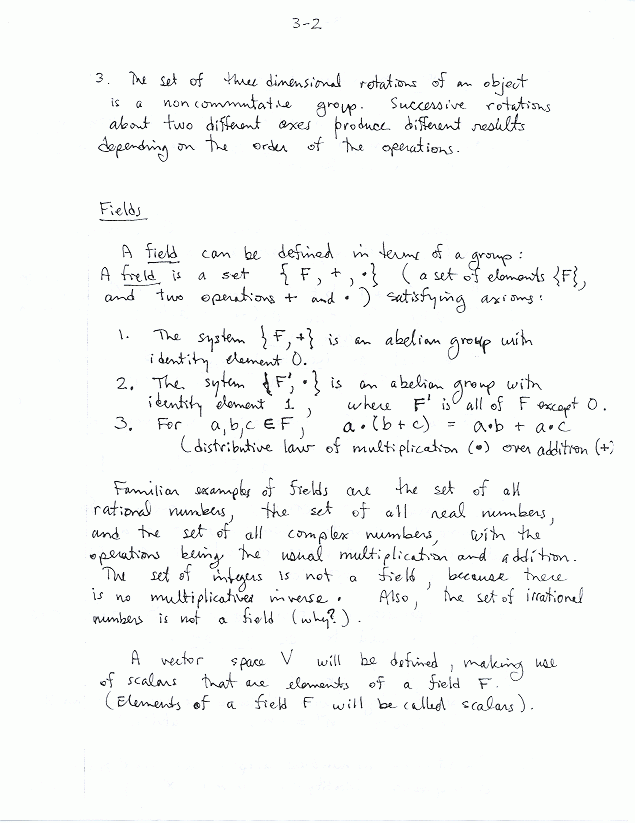 3-2
3. The set of three dimensional rotations of an object
is a noncommutative group. Successive rotations
about two different axes produce different results
depending on the order of the operations.
Fields
A field can be defined in terms of a group:
A field is a set { F, +, •} ( a set of elements {F},
and two operations + and • ) satisfying axioms:
1. The system {F, +} is an abelian group with
identity element 0.
2. The sytem {F', •} is an abelian group with
identity element 1, where F' is all of F except 0.
3. For a,b,c ∈ F, a•(b+c) = a•b + a•c
(distributive law of multiplication (•) over addition (+)
Familiar examples of fields are the set of all
rational numbers, the set of all real numbers,
and the set of all complex numbers, with the
operations being the usual multiplication and addition.
The set of integers is not a field, because there
is no multiplicative inverse. Also, the set of irrational
numbers is not a field (why?).
A vector space V will be defined, making use
of scalars that are elements of a field F.
(Elements of a field F will be called scalars).